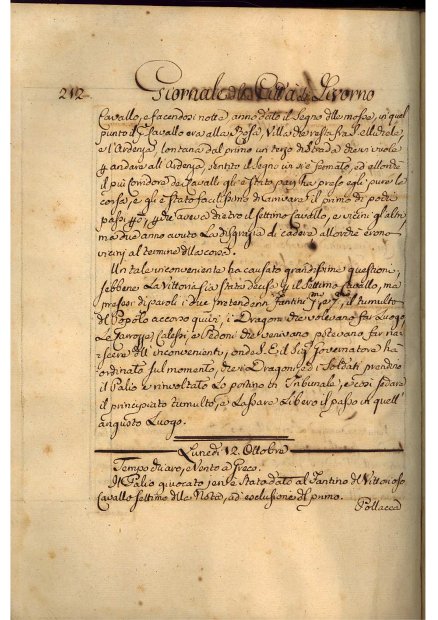 212
Giornale della Città di Livorno
Cavallo, e facendosi notte, anno dato il segno delle mosse, in quel
punto il Cavallo era alla Rosa, Villa che resta fra
e l'Ardenza, lontana dal primo un terzo di strada che vi vuole
andare all'Ardenza, sentito il segno si è fermato, ed
il più Corridore de Cavalli gl'è stato preso egli pure la
corsa, e gli è stato facile primo di arrivare il primo di
passi che aveva dietro il settimo Cavallo, e vicini gl'altri
ma due anno avuto La disgrazia di cadere allorché erono
vicini al termine della corsa.
Un tale inconveniente ha causato grandissime questione,
sebbene La Vittoria sia stata decisa il settimo Cavallo, ma
di parole i due pretendenti Fantini il tumulto
del Popolo accorso quivi, i Dragoni che volevano far Luogo,
Le Carozze Calessi, e Pedoni che venivano potevano far na-
scere dell'inconvenienti, onde S.E. il Sig. Governatore ha
ordinato sul momento, che i Dragoni, ed i Soldati prendino
il Palio e rinvoltato Lo portino in Tribunale, e così sedare
il principiato tumulto, e Lassare Libero il passo di quell'
angusto Luogo.
Lunedì 12. Ottobre
Tempo chiaro, e Vento a Greco.
Il Palio giuocato jeri è stato dato al Fantino del Vittorioso
Cavallo settimo della Nota, ad esclusione del primo.
Pollacca